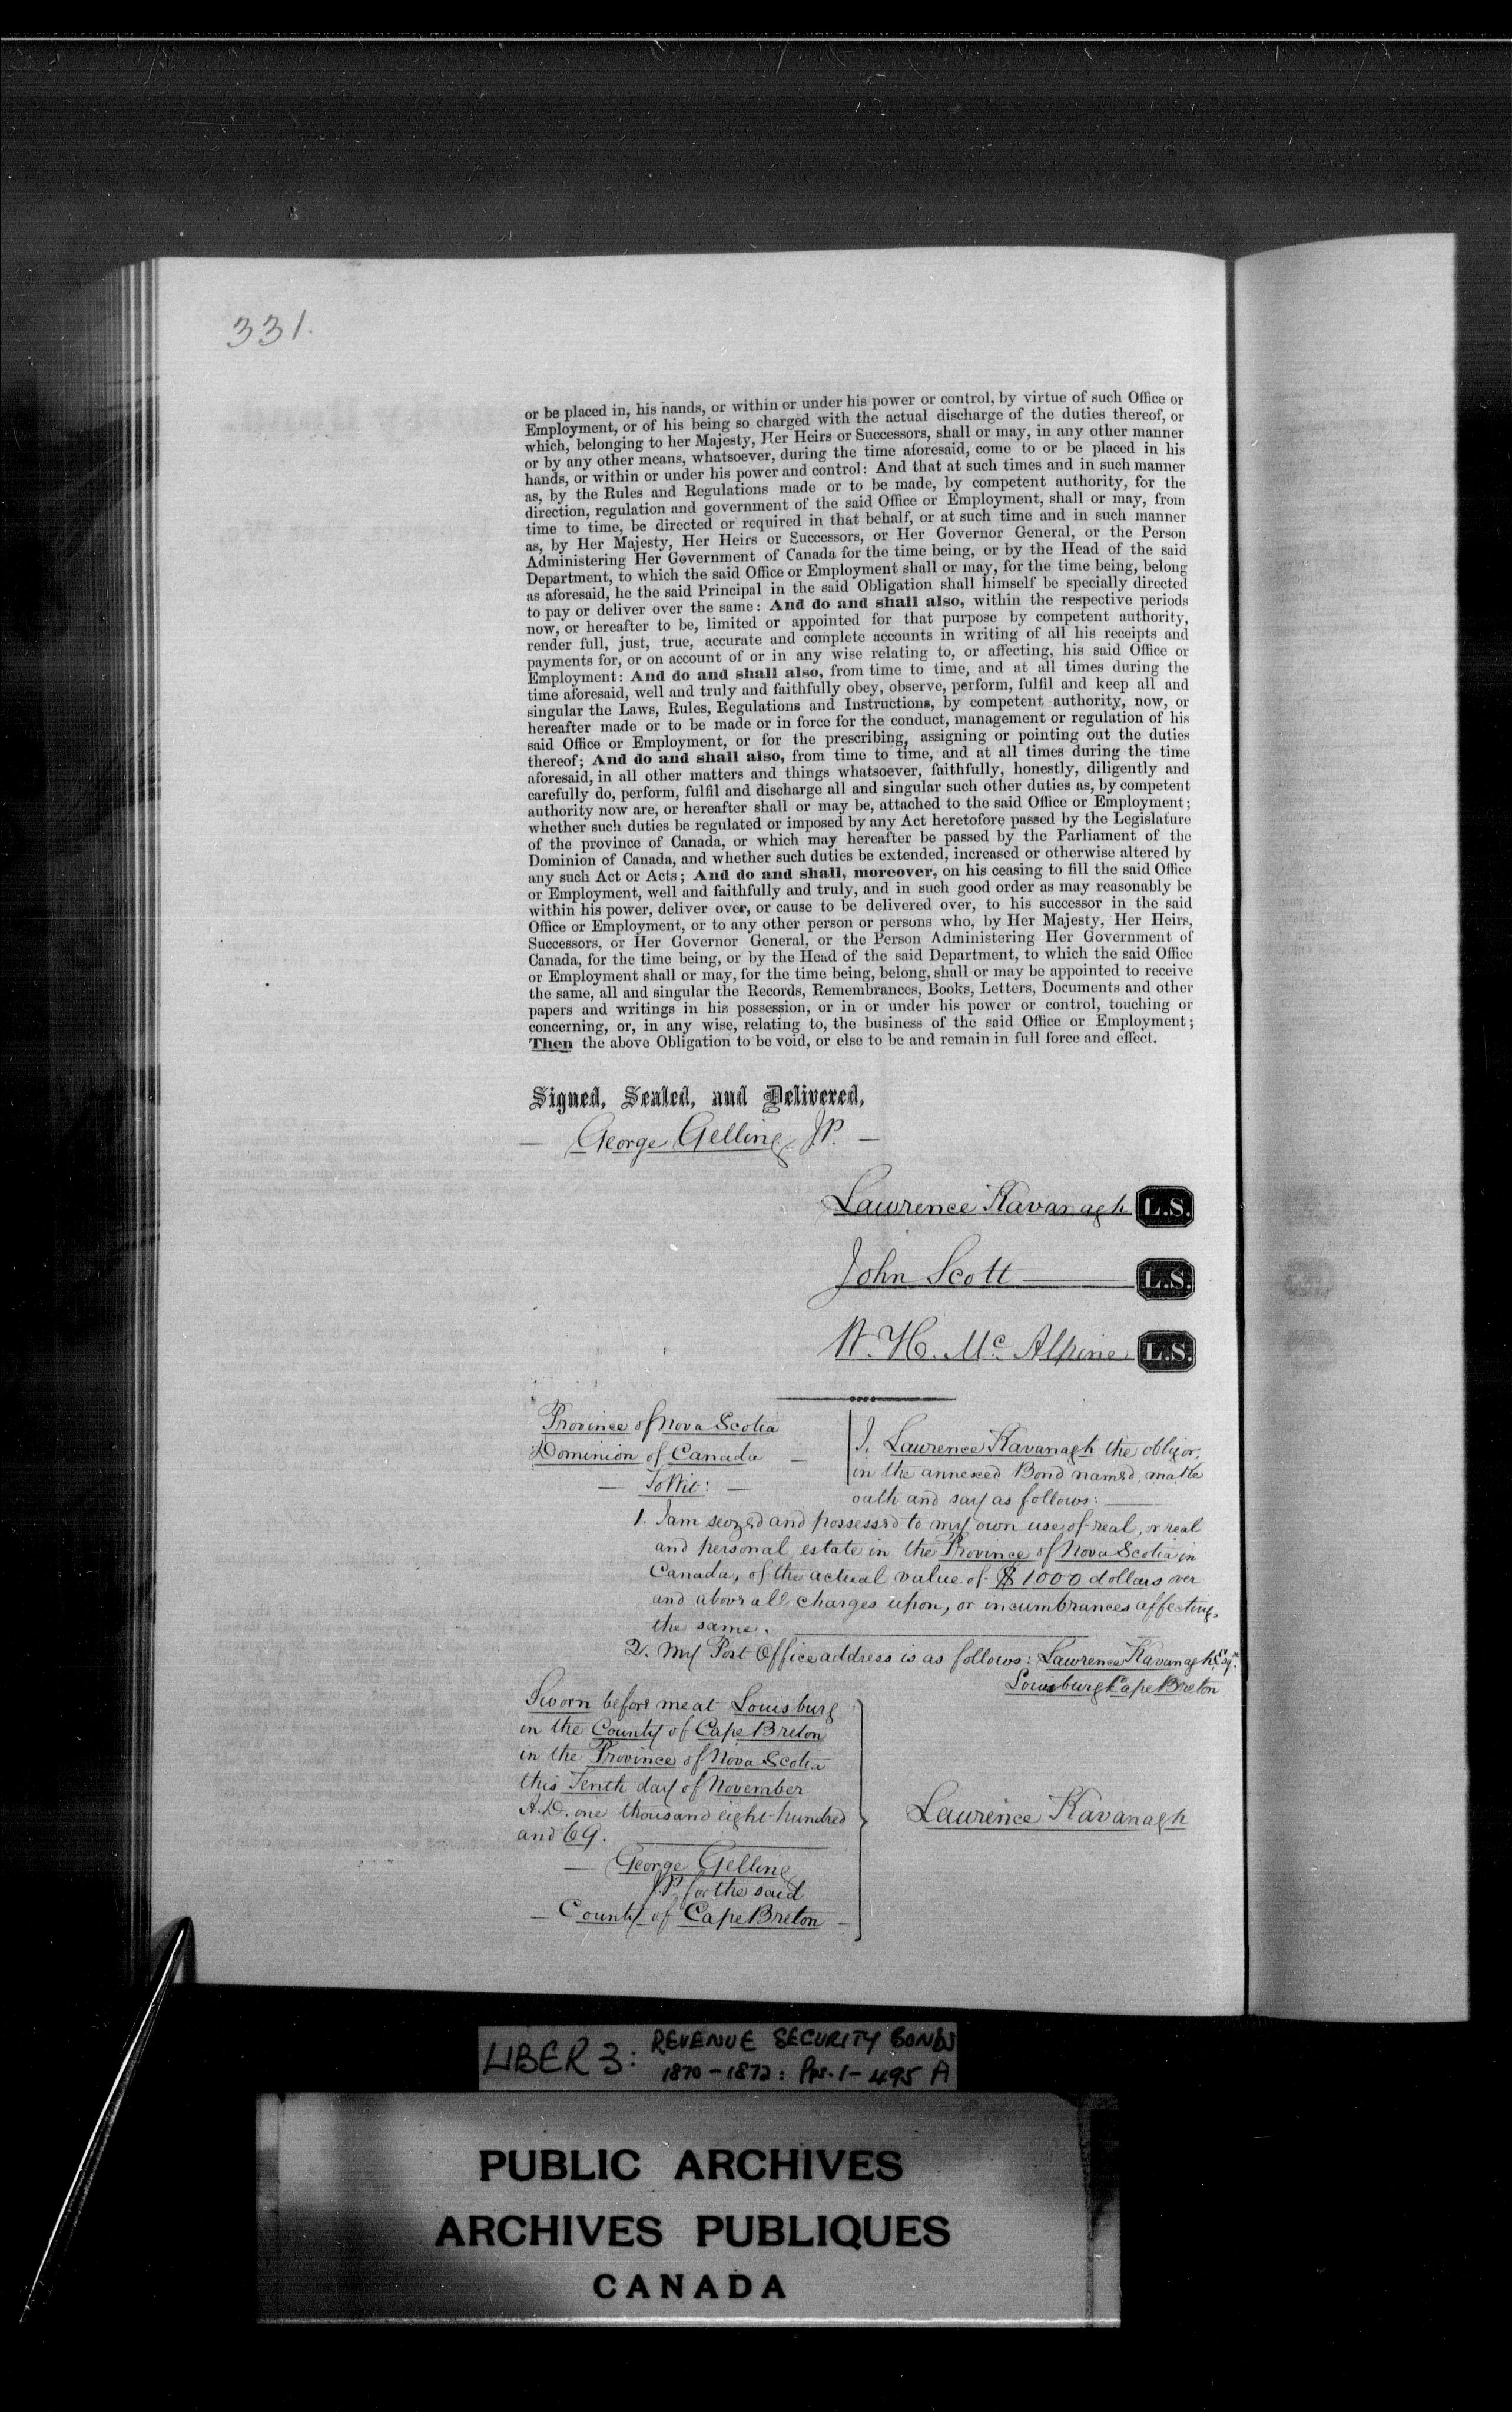 331.
or be placed in, his hands, or within or under his power or control, by virtue of such Office or
Employment, or of his being so charged with the actual discharge of the duties thereof, or
which, belonging to her Majesty, Her Heirs or Successors, shall or may, in any other manner
or by any other means, whatsoever, during the time aforesaid, come to or be placed in his
hands, or within or under his power and control: And that at such times and in such manner
as, by the Rules and Regulations made or to be made, by competent authority, for the
direction, regulation and government of the said Office or Employment, shall or may, from
time to time, be directed or required in that behalf, or at such time and in such manner
as, by Her Majesty, Her Heirs or Successors, or Her Governor General, or the Person
Administering Her Government of Canada for the time being, or by the Head of the said
Department, to which the said Office or Employment shall or may, for the time being, belong
as aforesaid, he the said Principal in the said Obligation shall himself be specially directed
to pay or deliver over the same: And do and shall also, within the respective periods
now, or hereafter to be, limited or appointed for that purpose by competent authority,
render full, just, true, accurate and complete accounts in writing of all his receipts and
payments for, or on account of or in any wise relating to, or affecting, his said Office or
Employment: And do and shall also, from time to time, and at all times during the
time aforesaid, well and truly and faithfully obey, observe, perform, fulfil and keep all and
singular the Laws, Rules, Regulations and Instructions, by competent authority, now, or
hereafter made or to be made or in force for the conduct, management or regulation of his
said Office or Employment, or for the prescribing, assigning or pointing out the duties
thereof; And do and shall also, from time to time, and at all times during the time
aforesaid, in all other matters and things whatsoever, faithfully, honestly, diligently and
carefully do, perform, fulfil and discharge all and singular such other duties as, by competent
authority now are, or hereafter shall or may be, attached to the said Office or Employment;
whether such duties be regulated or imposed by any Act heretofore passed by the Legislature
of the province of Canada, or which may hereafter be passed by the Parliament of the
Dominion of Canada, and whether such duties be extended, increased or otherwise altered by
any such Act or Acts; And do and shall, moreover, on his ceasing to fill the said Office
or Employment, well and faithfully and truly, and in such good order as may reasonably be
within his power, deliver over, or cause to be delivered over, to his successor in the said
Office or Employment, or to any other person or persons who, by Her Majesty, Her Heirs,
Successors, or Her Governor General, or the Person Administering Her Government of
Canada, for the time being, or by the Head of the said Department, to which the said Office
or Employment shall or may, for the time being, belong, shall or may be appointed to receive
the same, all and singular the Records, Remembrances, Books, Letters, Documents and other
papers and writings in his possession, or in or under his power or control, touching or
concerning, or, in any wise, relating to, the business of the said Office or Employment;
Then the above Obligation to be void, or else to be and remain in full force and effect.
Signed, Sealed, and Delivered,
— George Gelling J.P. —
Lawrence Kavanagh L.S.
John Scott L.S.
W. H. Mc Alpine L.S.
Province of Nova Scotia
Dominion of Canada —
— To Wit: —
I. Lawrence Kavanagh the obligor,
in the annexed Bond named, make
oath and say as follows: —
1. I am seozed and possessed to my own use of real, or real
and personal estate in the Province of Nova Scotia in
Canada, of the actual value of $1000 dollars over
and above all charges upon, or incumbrances affecting,
the same.
2. My Post Office address is as follows: Lawrence Kavanagh Esqr.
Louisburg Cape Breton
Sworn before me at Louisburg
in the County of Cape Breton
in the Province of Nova Scotia
this Tenth day of November
A.D. one thousand eight hundred
and 69.
— George Gelling
J.P. for the said
— County of Cape Breton —
Lawrence Kavanagh
LIBER 3: REVENUE SECURITY BONDS
1870-1872: Pps. 1-495 A
PUBLIC ARCHIVES
ARCHIVES PUBLIQUES
CANADA